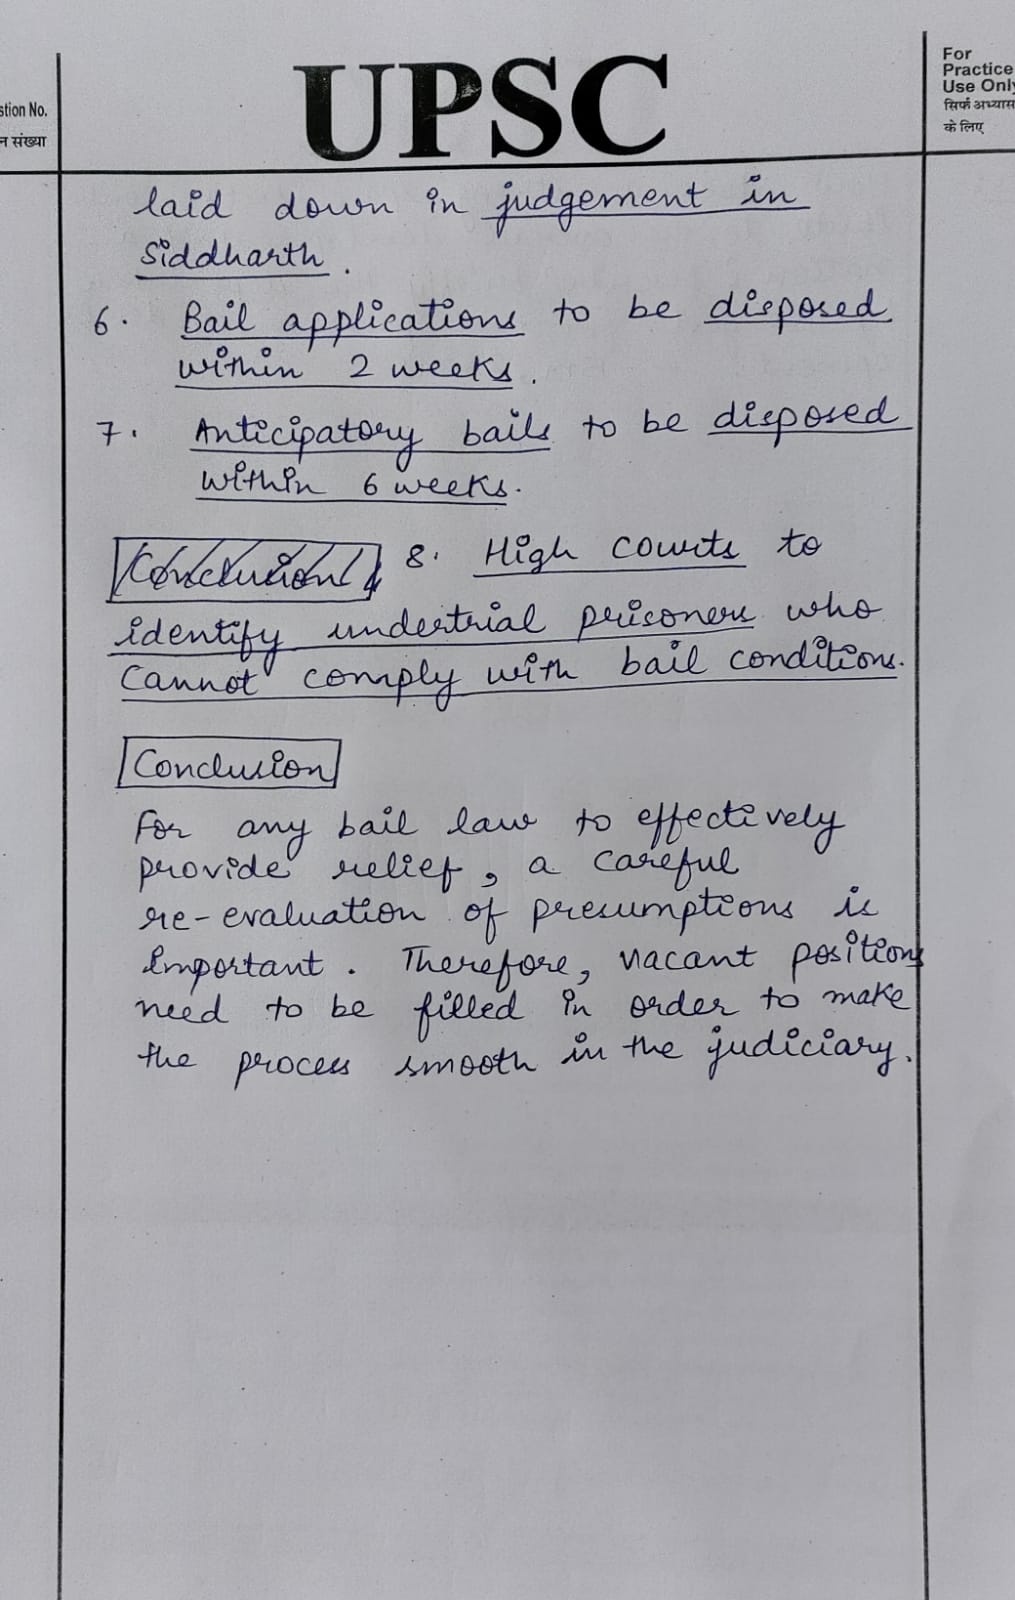 UPSC
For
Practice
Use Only
सिर्फ अभ्यास
के लिए
stion No.
न संख्या
laid down in judgement in
Siddharth.
6. Bail applications to be disposed
within 2 weeks.
7. Anticipatory bails to be disposed
within 6 weeks.
Conclusion 8. High Courts to
identify undertrial prisoners who
cannot comply with bail conditions.
Conclusion
For any bail law to effectively
provide relief, a careful
re-evaluation of presumptions is
important. Therefore, vacant positions
need to be filled in order to make
the process smooth in the judiciary.